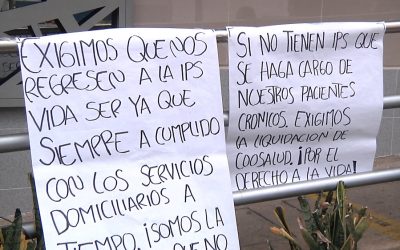 EXIGIMOS QUE NOS
REGRESEN A LA IPS
VIDA SER YA QUE
SIEMPRE A CUMPLIDO
CON LOS SERVICIOS
DOMICILIARIOS A
TIEMPO. ¡SOMOS LA
QUE NO
SI NO TIENEN IPS QUE
SE HAGA CARGO DE
NUESTROS PACIENTES
CRONICOS. EXIGIMOS
LA LIQUIDACION DE
COOSALUD. ¡POR EL
DERECHO A LA VIDA!